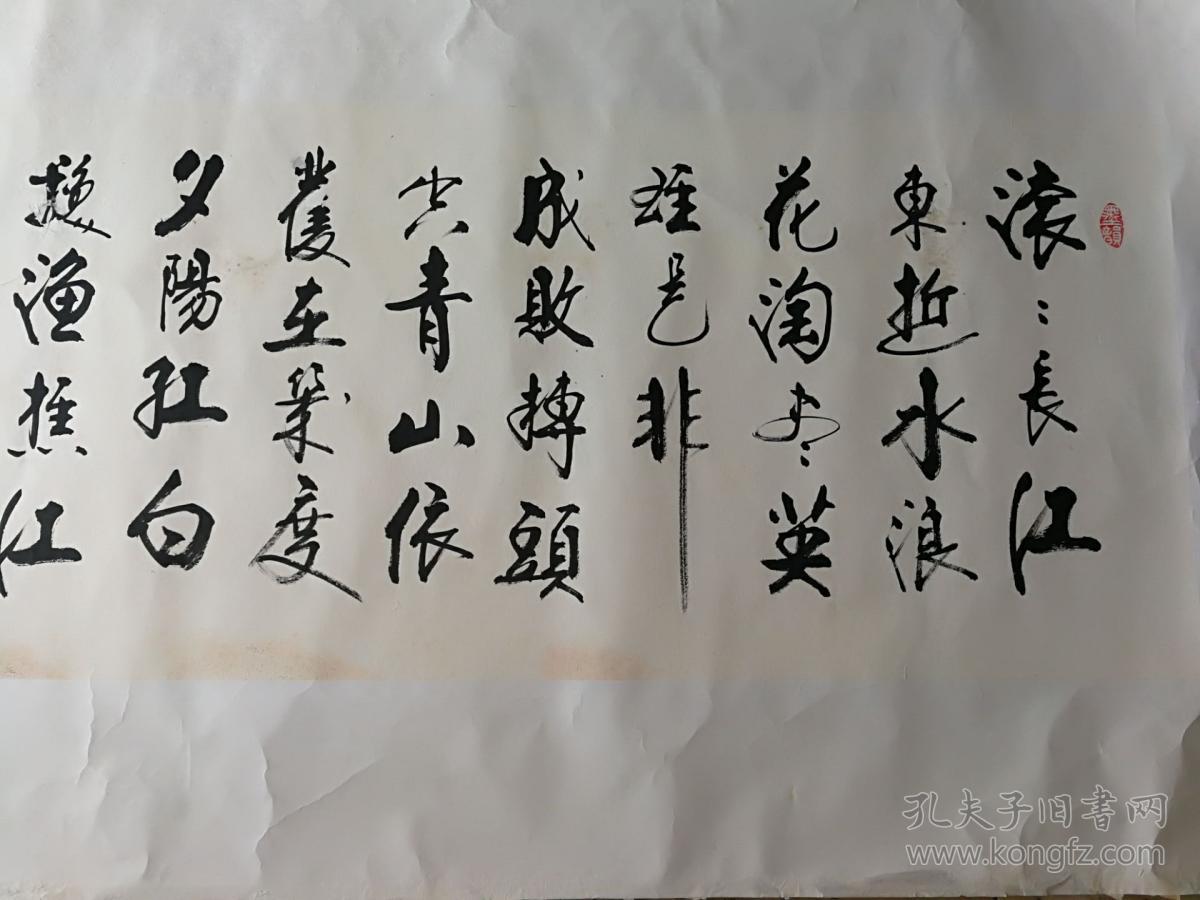 墨韻
滚〻長江
東逝水浪
花淘尽英
雄是非
成敗轉頭
空青山依
舊在幾度
夕陽紅白
髮漁樵江
孔夫子旧書网
www.kongfz.com